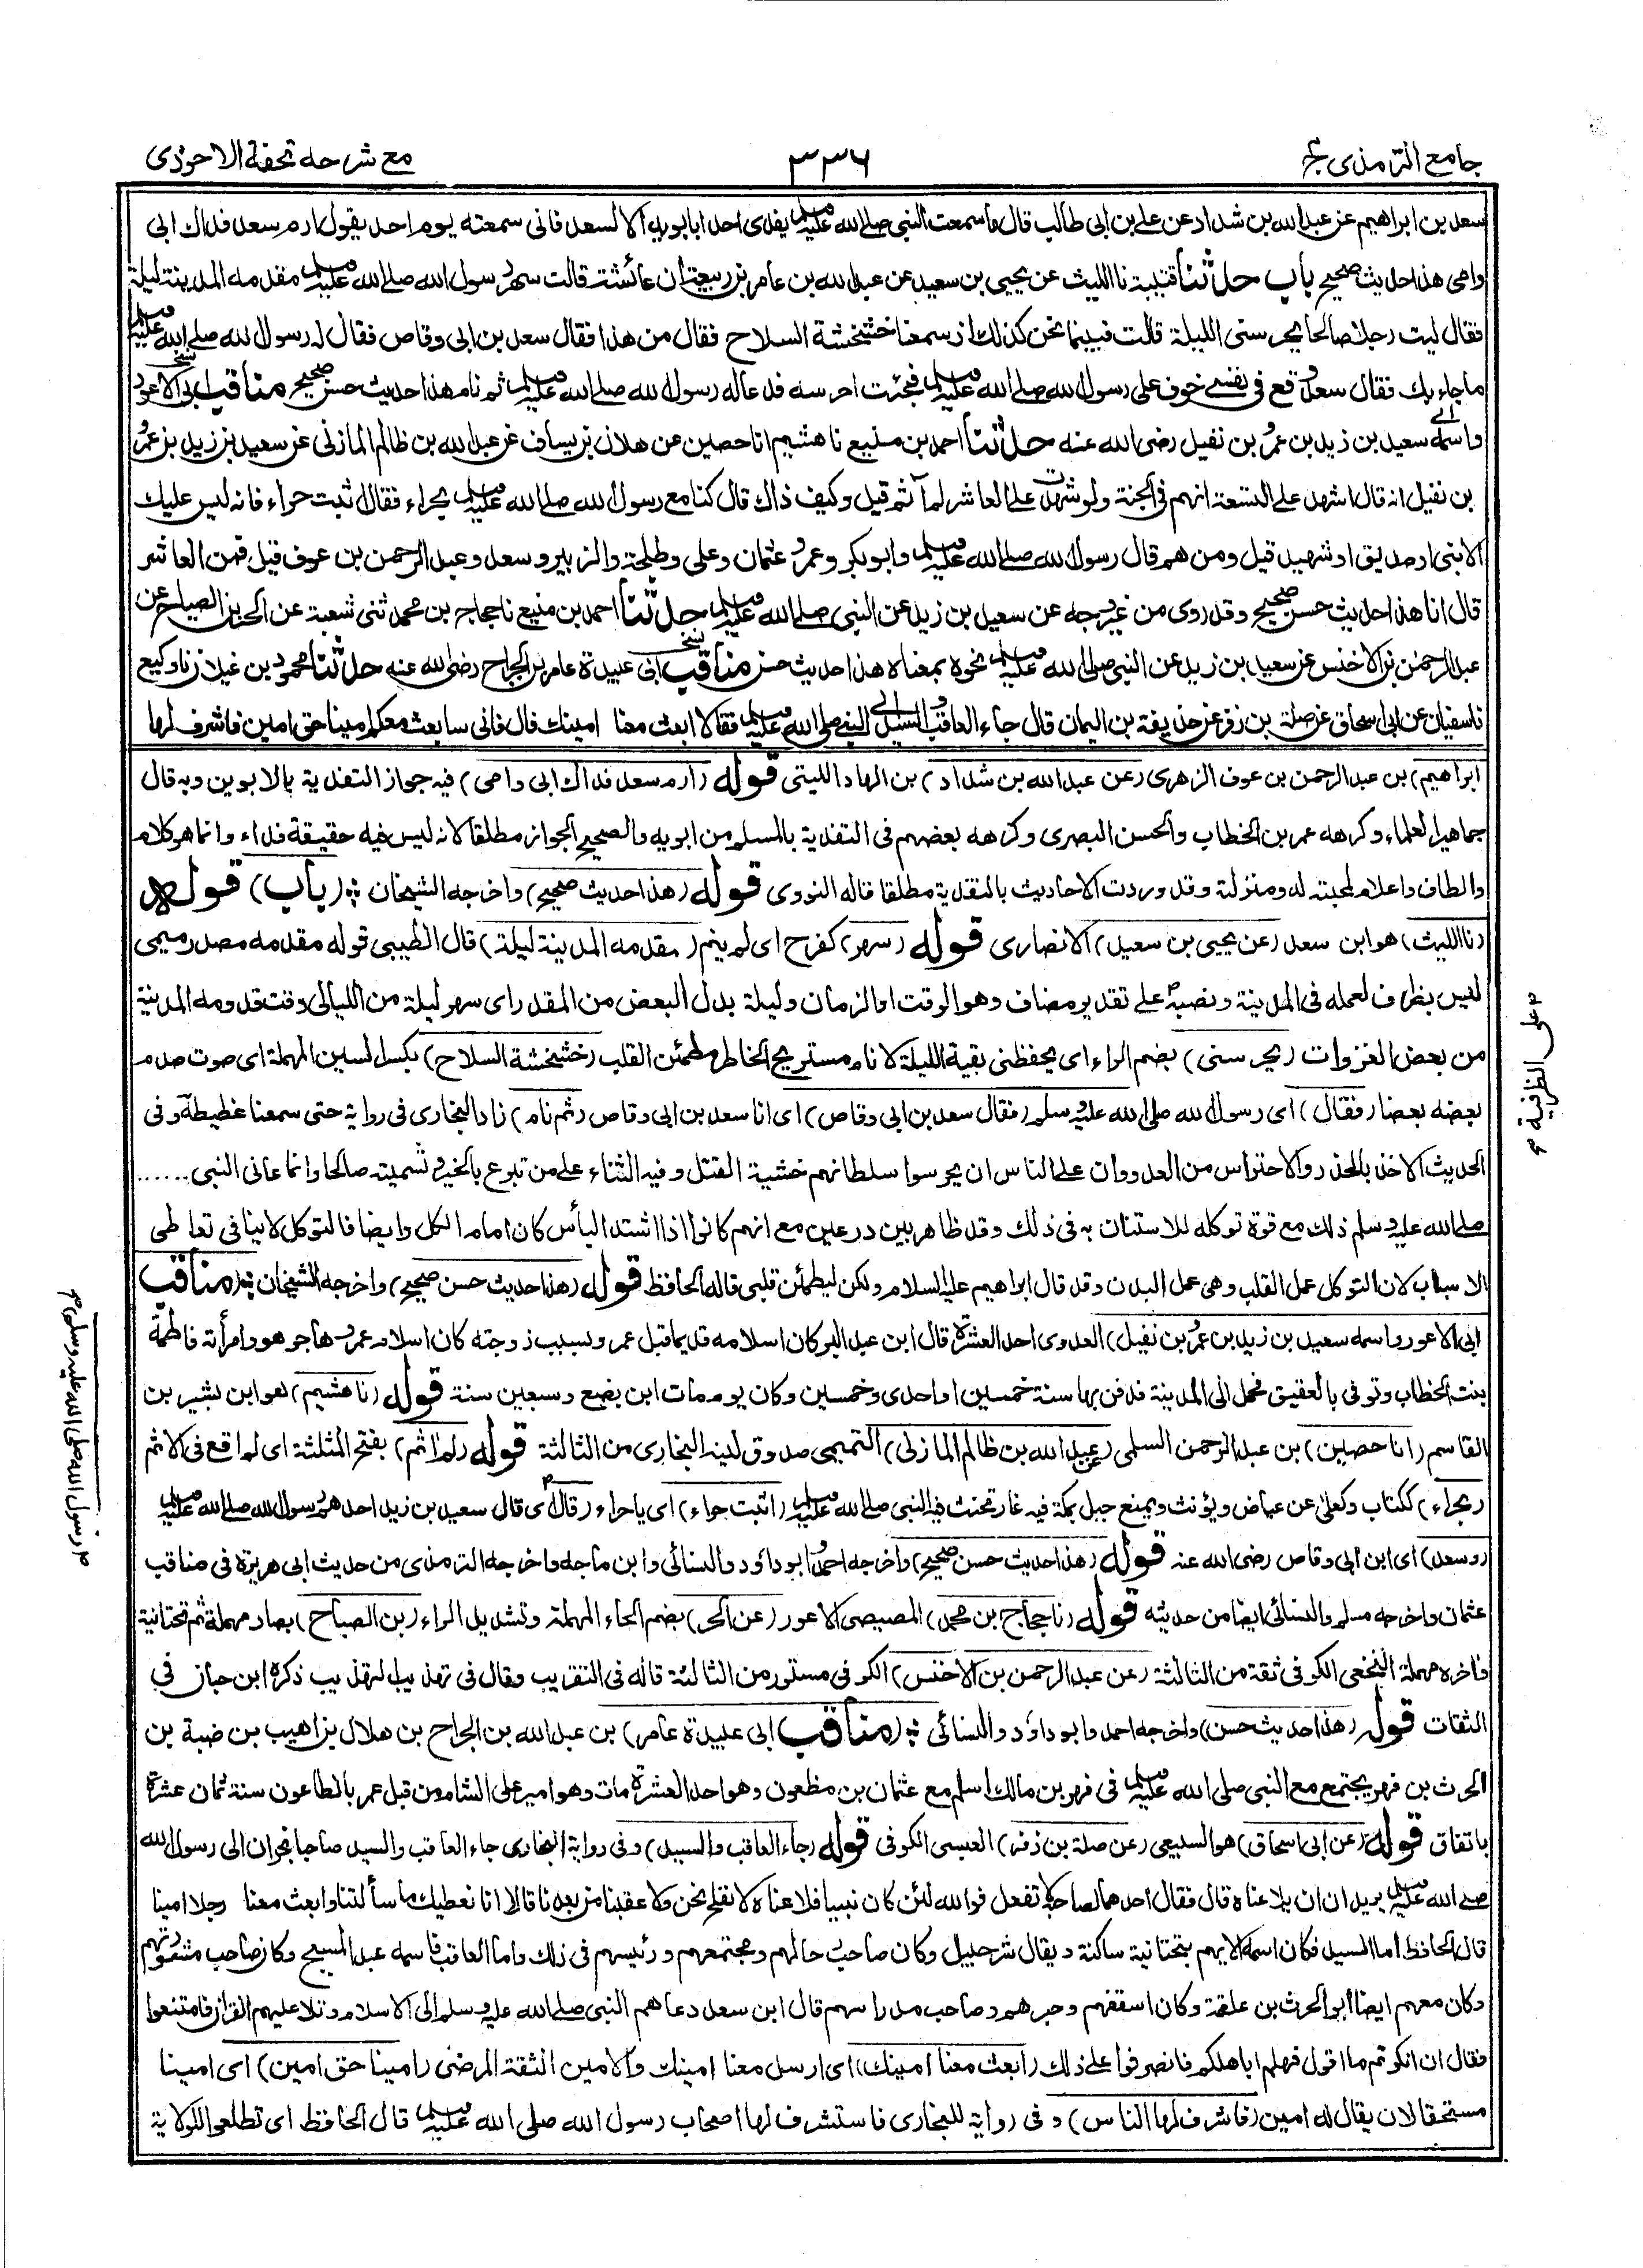 جامع الترمذی ج۴
۳۳۶
مع شرحه تحفة الاحوذی
سعد بن ابراهيم عن عبد الله بن شداد عن علي بن ابي طالب قال ما سمعت النبي صلى الله عليه وسلم يفدى احدا بابويه الا لسعد فانى سمعته يوم احد يقول ارم سعد فداك ابى
وامى هذا حديث صحيح باب حدثنا قتيبة نا الليث عن يحيى بن سعيد عن عبد الله بن عامر بن ربيعة ان عائشة قالت سهر رسول الله صلى الله عليه وسلم مقدمه المدينة ليلة
فقال ليت رجلا صالحا يحرسنى الليلة قالت فبينما نحن كذلك اذ سمعنا خشخشة السلاح فقال من هذا فقال سعد بن ابى وقاص فقال له رسول الله صلى الله عليه وسلم
ما جاء بك فقال سعد وقع فى نفسى خوف على رسول الله صلى الله عليه وسلم فجئت احرسه فدعا له رسول الله صلى الله عليه وسلم ثم نام هذا حديث حسن صحيح مناقب ابى الاعور
واسمه سعيد بن زيد بن عمرو بن نفيل رضى الله عنه حدثنا احمد بن منيع نا هشيم انا حصين عن هلال بن يساف عن عبد الله بن ظالم المازنى عن سعيد بن زيد بن عمرو
بن نفيل انه قال اشهد على التسعة انهم فى الجنة ولو شهدت على العاشر لم آثم قيل وكيف ذاك قال كنا مع رسول الله صلى الله عليه وسلم بحراء فقال اثبت حراء فانه ليس عليك
الا نبى او صديق او شهيد قيل ومن هم قال رسول الله صلى الله عليه وسلم وابو بكر وعمر وعثمان وعلى وطلحة والزبير وسعد وعبد الرحمن بن عوف قيل فمن العاشر
قال انا هذا حديث حسن صحيح وقد روى من غير وجه عن سعيد بن زيد عن النبي صلى الله عليه وسلم حدثنا احمد بن منيع نا حجاج بن محمد ثنى شعبة عن الحر بن الصياح عن
عبد الرحمن بن الاخنس عن سعيد بن زيد عن النبي صلى الله عليه وسلم نحوه بمعناه هذا حديث حسن مناقب ابى عبيدة عامر بن الجراح رضى الله عنه حدثنا محمود بن غيلان نا وكيع
نا سفيان عن ابى اسحاق عن صلة بن زفر عن حذيفة بن اليمان قال جاء العاقب والسيد الى النبى صلى الله عليه وسلم فقالا ابعث معنا امينك قال فانى سابعث معكم امينا حق امين فاشرف لها
ابراهيم) بن عبد الرحمن بن عوف الزهرى (عن عبد الله بن شداد) بن الهاد الليثى قوله (ارم سعد فداك ابى وامى) فيه جواز التفدية بالابوين وبه قال
جماهير العلماء وكرهه عمر بن الخطاب والحسن البصرى وكرهه بعضهم فى التفدية بالمسلم من ابويه والصحيح الجواز مطلقا لانه ليس فيه حقيقة فداء وانما هو كلام
والطاف واعلام لمحبته له ومنزلته وقد وردت الاحاديث بالتفدية مطلقا قاله النووى قوله (هذا حديث صحيح) واخرجه الشيخان (باب) قوله
(نا الليث) هو ابن سعد (عن يحيى بن سعيد) الانصارى قوله (سهر) كفرح اى لم ينم (مقدمه المدينة ليلة) قال الطيبى قوله مقدمه مصدر ميمى
ليس بظرف لعمله فى المدينة ونصبه على تقدير مضاف وهو الوقت او الزمان وليلة بدل البعض من المقدر اى سهر ليلة من الليالى وقت قدومه المدينة
من بعض الغزوات (يحرسنى) بضم الراء اى يحفظنى بقية الليلة لانام مستريح الخاطر مطمئن القلب (خشخشة السلاح) بكسر السين المهملة اى صوت صدم
بعضه بعضا (فقال) اى رسول الله صلى الله عليه وسلم (فقال سعد بن ابى وقاص) اى انا سعد بن ابى وقاص (ثم نام) زاد البخارى فى رواية حتى سمعنا غطيطه وفى
الحديث الاخذ بالحذر والاحتراس من العدو وان على الناس ان يحرسوا سلطانهم خشية القتل وفيه الثناء على من تبرع بالخير وتسميته صالحا وانما عانى النبى ......
صلى الله عليه وسلم ذلك مع قوة توكله للاستنان به فى ذلك وقد ظاهر بين درعين مع انهم كانوا اذا اشتد البأس كان امام الكل وايضا فالتوكل لا ينافى تعاطى
الاسباب لان التوكل عمل القلب وهى عمل البدن وقد قال ابراهيم عليه السلام ولكن ليطمئن قلبى قاله الحافظ قوله (هذا حديث حسن صحيح) واخرجه الشيخان (مناقب
ابى الاعور واسمه سعيد بن زيد بن عمرو بن نفيل) العدوى احد العشرة قال ابن عبد البر كان اسلامه قديما قبل عمر وبسبب زوجته كان اسلام عمر وهاجر هو وامرأته فاطمة
بنت الخطاب وتوفى بالعقيق فحمل الى المدينة فدفن بها سنة خمسين او احدى وخمسين وكان يوم مات ابن بضع وسبعين سنة قوله (نا هشيم) هو ابن بشير بن
القاسم (انا حصين) بن عبد الرحمن السلمى (عن عبد الله بن ظالم المازنى) التميمى صدوق لينه البخارى من الثالثة قوله (لم آثم) بفتح المثلثة اى لم اقع فى الاثم
(بحراء) ككتاب وكعلى عن عياض ويؤنث ويمنع جبل بمكة فيه غار تحنث فيه النبي صلى الله عليه وسلم (اثبت حراء) اى يا حراء (قال) اى قال سعيد بن زيد احدهم رسول الله صلى الله عليه وسلم
(وسعد) اى ابن ابى وقاص رضى الله عنه قوله (هذا حديث حسن صحيح) واخرجه احمد وابو داؤد والنسائى وابن ماجه واخرجه الترمذى من حديث ابى هريرة فى مناقب
عثمان واخرجه مسلم والنسائى ايضا من حديثه قوله (نا حجاج بن محمد) المصيصى الاعور (عن الحر) بضم الحاء المهملة وتشديد الراء (بن الصياح) بصاد مهملة ثم تحتانية
واخره مهملة النخعى الكوفى ثقة من الثالثة (عن عبد الرحمن بن الاخنس) الكوفى مستور من الثالثة قاله فى التقريب وقال فى تهذيب التهذيب ذكره ابن حبان فى
الثقات قوله (هذا حديث حسن) واخرجه احمد وابو داؤد والنسائى (مناقب ابى عبيدة عامر) بن عبد الله بن الجراح بن هلال بن اهيب بن ضبة بن
الحرث بن فهر يجتمع مع النبي صلى الله عليه وسلم فى فهر بن مالك اسلم مع عثمان بن مظعون وهو احد العشرة مات وهو امير على الشام من قبل عمر بالطاعون سنة ثمان عشرة
باتفاق قوله (عن ابى اسحاق) هو السبيعى (عن صلة بن زفر) العبسى الكوفى قوله (جاء العاقب والسيد) وفى رواية البخارى جاء العاقب والسيد صاحبا نجران الى رسول الله
صلى الله عليه وسلم يريدان ان يلاعناه قال فقال احدهما لصاحبه لا تفعل فوالله لئن كان نبيا فلاعناه لا نفلح نحن ولا عقبنا من بعدنا قالا انا نعطيك ما سألتنا وابعث معنا رجلا امينا
قال الحافظ اما السيد فكان اسمه الايهم بتحتانية ساكنة ويقال شرحبيل وكان صاحب رحالهم ومجتمعهم ورئيسهم فى ذلك واما العاقب فاسمه عبد المسيح وكان صاحب مشورتهم
وكان معهم ايضا ابو الحرث بن علقمة وكان اسقفهم وحبرهم وصاحب مدراسهم قال ابن سعد دعاهم النبي صلى الله عليه وسلم الى الاسلام وتلا عليهم القران فامتنعوا
فقال ان انكرتم ما اقول فهلم اباهلكم فانصرفوا على ذلك (ابعث معنا امينك) اى ارسل معنا امينك والامين الثقة المرضى (امينا حق امين) اى امينا
مستحقا لان يقال له امين (فاشرف لها الناس) وفى رواية للبخارى فاستشرف لها اصحاب رسول الله صلى الله عليه وسلم قال الحافظ اى تطلعوا للولاية
على الظرفية
رسول الله صلى الله عليه وسلم